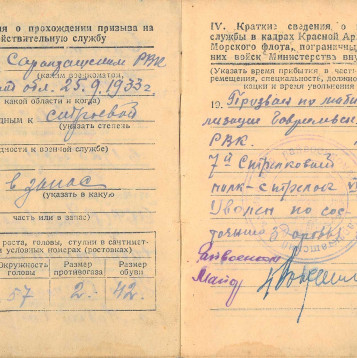 я о прохождении призыва на
йствительную службу
РВК
(каким военкоматом,
отл. 25.9.1933г
какой области и когда)
дным к строевой
(указать степень
дности к военной службе)
в запас
(указать в какую
часть или в запас)
роста, головы, ступни в сантимет-
и условных номерах (ростовках)
Окружность головы
Размер противогаза
Размер обуви
57 2 42
IV. Краткие сведения о
службы в кадрах Красной Ар
Морского флота, пограничны
них войск Министерства вну
(Указать время прибытия в часть
ремещения, специальность, должно
кации и время увольнения
19. Призван по моби
лизации
РВК.
7й Стрелковый
полк – стрелок
Уволен по сос-
здоровья